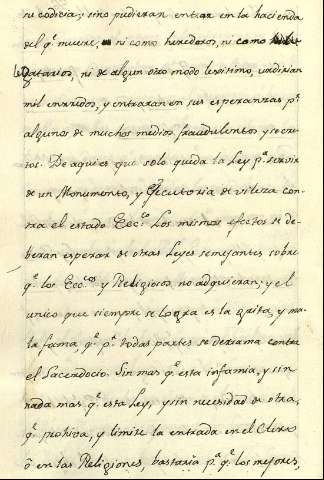 su codicia; sino pudieran entrar en la hacienda
del q.e muere, ni como herederos, ni como
legatarios, ni de algun otro modo lexitimo, urdirian
mil enrredos, y entraran en sus esperanzas p.r
algunos de muchos medios fraudulentos y secre-
tos. De aqui es que solo queda la Ley p.a servir
de un Monumento, y Egecutoria de vileza con-
tra el estado Ecc.co Los mismos efectos se de-
beran esperar de otras Leyes semejantes sobre
q.e los Ecc.cos y Religiosos no adquieran; y el
unico que siempre se logra es la grita, y ma-
la fama, q.e p.r todas partes se derrama contra
el Sacerdocio. Sin mas q.e esta infamia, y sin
nada mas q.e esta Ley, y sin necesidad de otra,
q.e prohiva, y limite la entrada en el Clero
ô en las Religiones, bastaria p.a q.e los mejores,